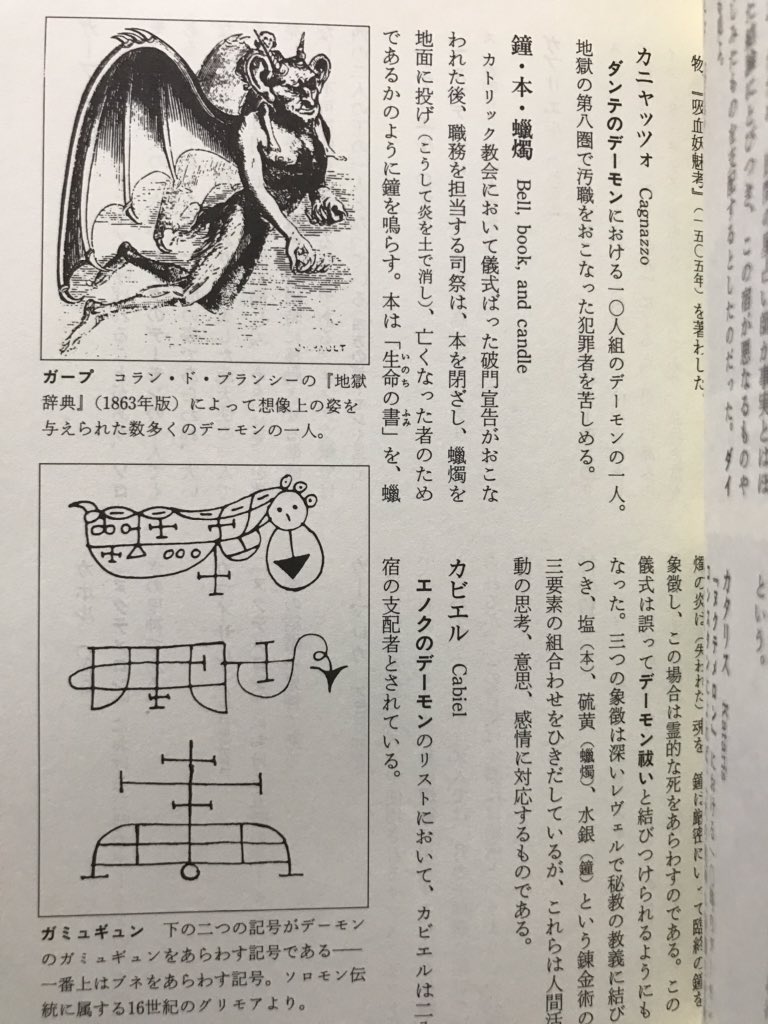 この宿が悪なるものや
するとしたのだった。ダイ
物、『吸血妖魅考』（一五〇五年）を著わした。
カニャッツォ Cagnazzo
ダンテのデーモンにおける一〇人組のデーモンの一人。
地獄の第八圏で汚職をおこなった犯罪者を苦しめる。
鐘・本・蠟燭 Bell, book, and candle
カトリック教会において儀式ばった破門宣告がおこな
われた後、職務を担当する司祭は、本を閉ざし、蠟燭を
地面に投げ（こうして炎を土で消し）、亡くなった者のため
であるかのように鐘を鳴らす。本は「生命の書」を、蠟
いのち ふみ
という。
カタリス Kataris
燭の炎は（失われた）魂を、鐘は厳密にいって臨終の鐘を
象徴し、この場合は霊的な死をあらわすのである。この
儀式は誤ってデーモン祓いと結びつけられるようにも
なった。三つの象徴は深いレヴェルで秘教の教義に結び
つき、塩（本）、硫黄（蠟燭）、水銀（鐘）という錬金術の
三要素の組合わせをひきだしているが、これらは人間活
動の思考、意思、感情に対応するものである。
カビエル Cabiel
エノクのデーモンのリストにおいて、カビエルは二八
宿の支配者とされている。
ガープ コラン・ド・プランシーの『地獄
辞典』（1863年版）によって想像上の姿を
与えられた数多くのデーモンの一人。
ガミュギュン 下の二つの記号がデーモン
のガミュギュンをあらわす記号である——
一番上はブネをあらわす記号。ソロモン伝
統に属する16世紀のグリモアより。